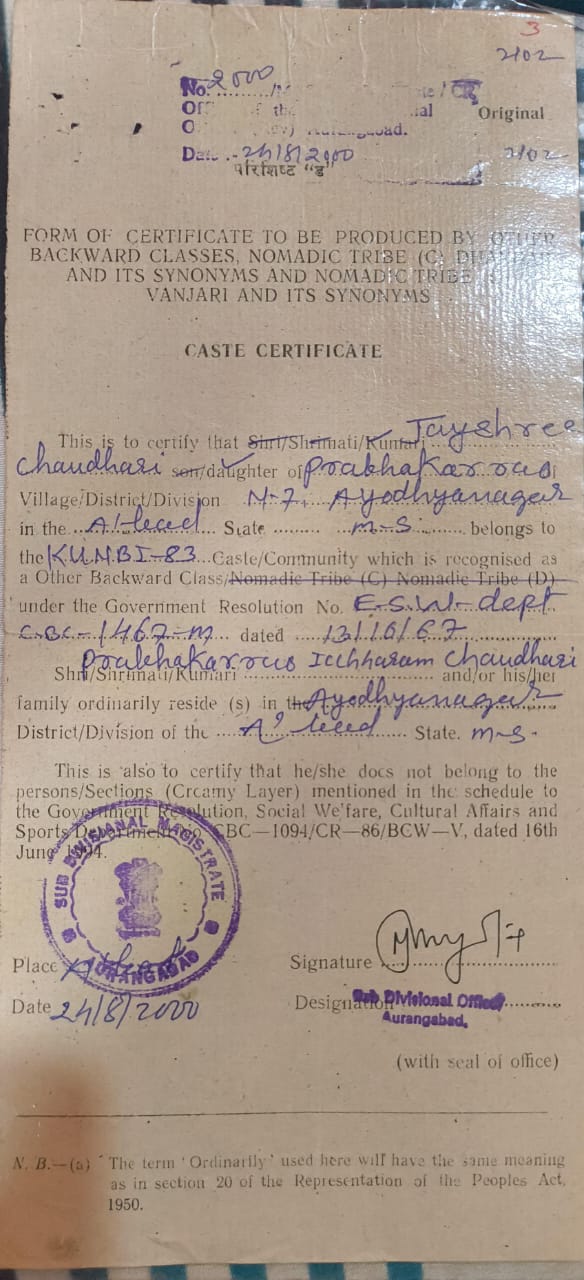 3
2102
No. 2000
Of
Original
Aurangabad.
Date .- 24/8/2000
2102
परिशिष्ट "ड"
FORM OF CERTIFICATE TO BE PRODUCED BY OTHER
BACKWARD CLASSES, NOMADIC TRIBE (C) DHANGAR
AND ITS SYNONYMS AND NOMADIC TRIBE
VANJARI AND ITS SYNONYMS
CASTE CERTIFICATE
This is to certify that Shri/Shrimati/Kumari Jayshree
Chaudhari son/daughter of Prabhakarrao
Village/District/Division N-7, Ayodhyanagar
in the A'bad State M-S. belongs to
the KUNBI-83 Caste/Community which is recognised as
a Other Backward Class/Nomadic Tribe (C) Nomadic Tribe (D)
under the Government Resolution No. E.S.W.dept
C.B.C-1467-M dated 13/10/67
Prabhakarrao Ichharam Chaudhari
Shri/Shrimati/Kumari and/or his/her
family ordinarily reside (s) in the Ayodhyanagar
District/Division of the A'bad State. M-S.
This is also to certify that he/she does not belong to the
persons/Sections (Creamy Layer) mentioned in the schedule to
the Government Resolution, Social We'fare, Cultural Affairs and
Sports Department no. CBC—1094/CR—86/BCW—V, dated 16th
June 1994.
SUB DIVISIONAL MAGISTRATE
AURANGABAD
Place A'bad
Signature
Date 24/8/2000
Designation Sub Divisional Officer
Aurangabad.
(with seal of office)
N. B.—(a) The term 'Ordinarily' used here will have the same meaning
as in section 20 of the Representation of the Peoples Act,
1950.